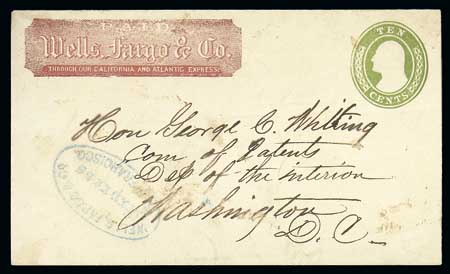 PAID
Wells, Fargo & Co.
THROUGH OUR CALIFORNIA AND ATLANTIC EXPRESS.
TEN
CENTS
Hon George C. Whiting
Com of Patents
Dep of the interior
Washington
D. C.
WELLS, FARGO & CO
SAN FRANCISCO